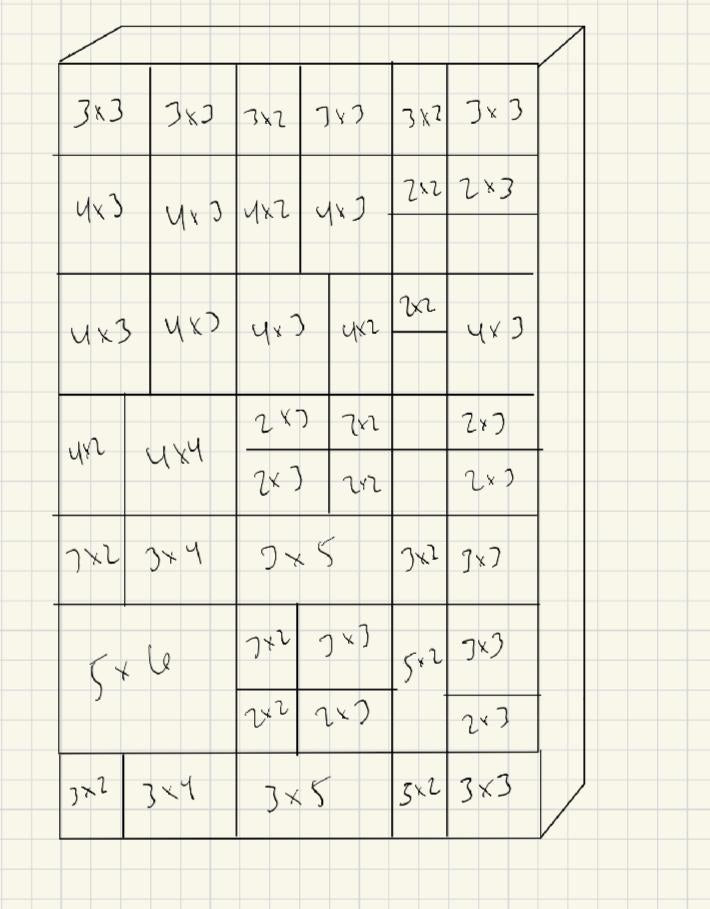 3x3 3x3 3x2 3x3 3x2 3x3
4x3 4x3 4x2 4x3 2x2 2x3
4x3 4x3 4x3 4x2 2x2 4x3
4x2 4x4 2x3 2x2 2x3
2x3 2x2 2x3
3x2 3x4 3x5 3x2 3x3
5x6 3x2 3x3 5x2 3x3
2x2 2x3 2x3
3x2 3x4 3x5 3x2 3x3